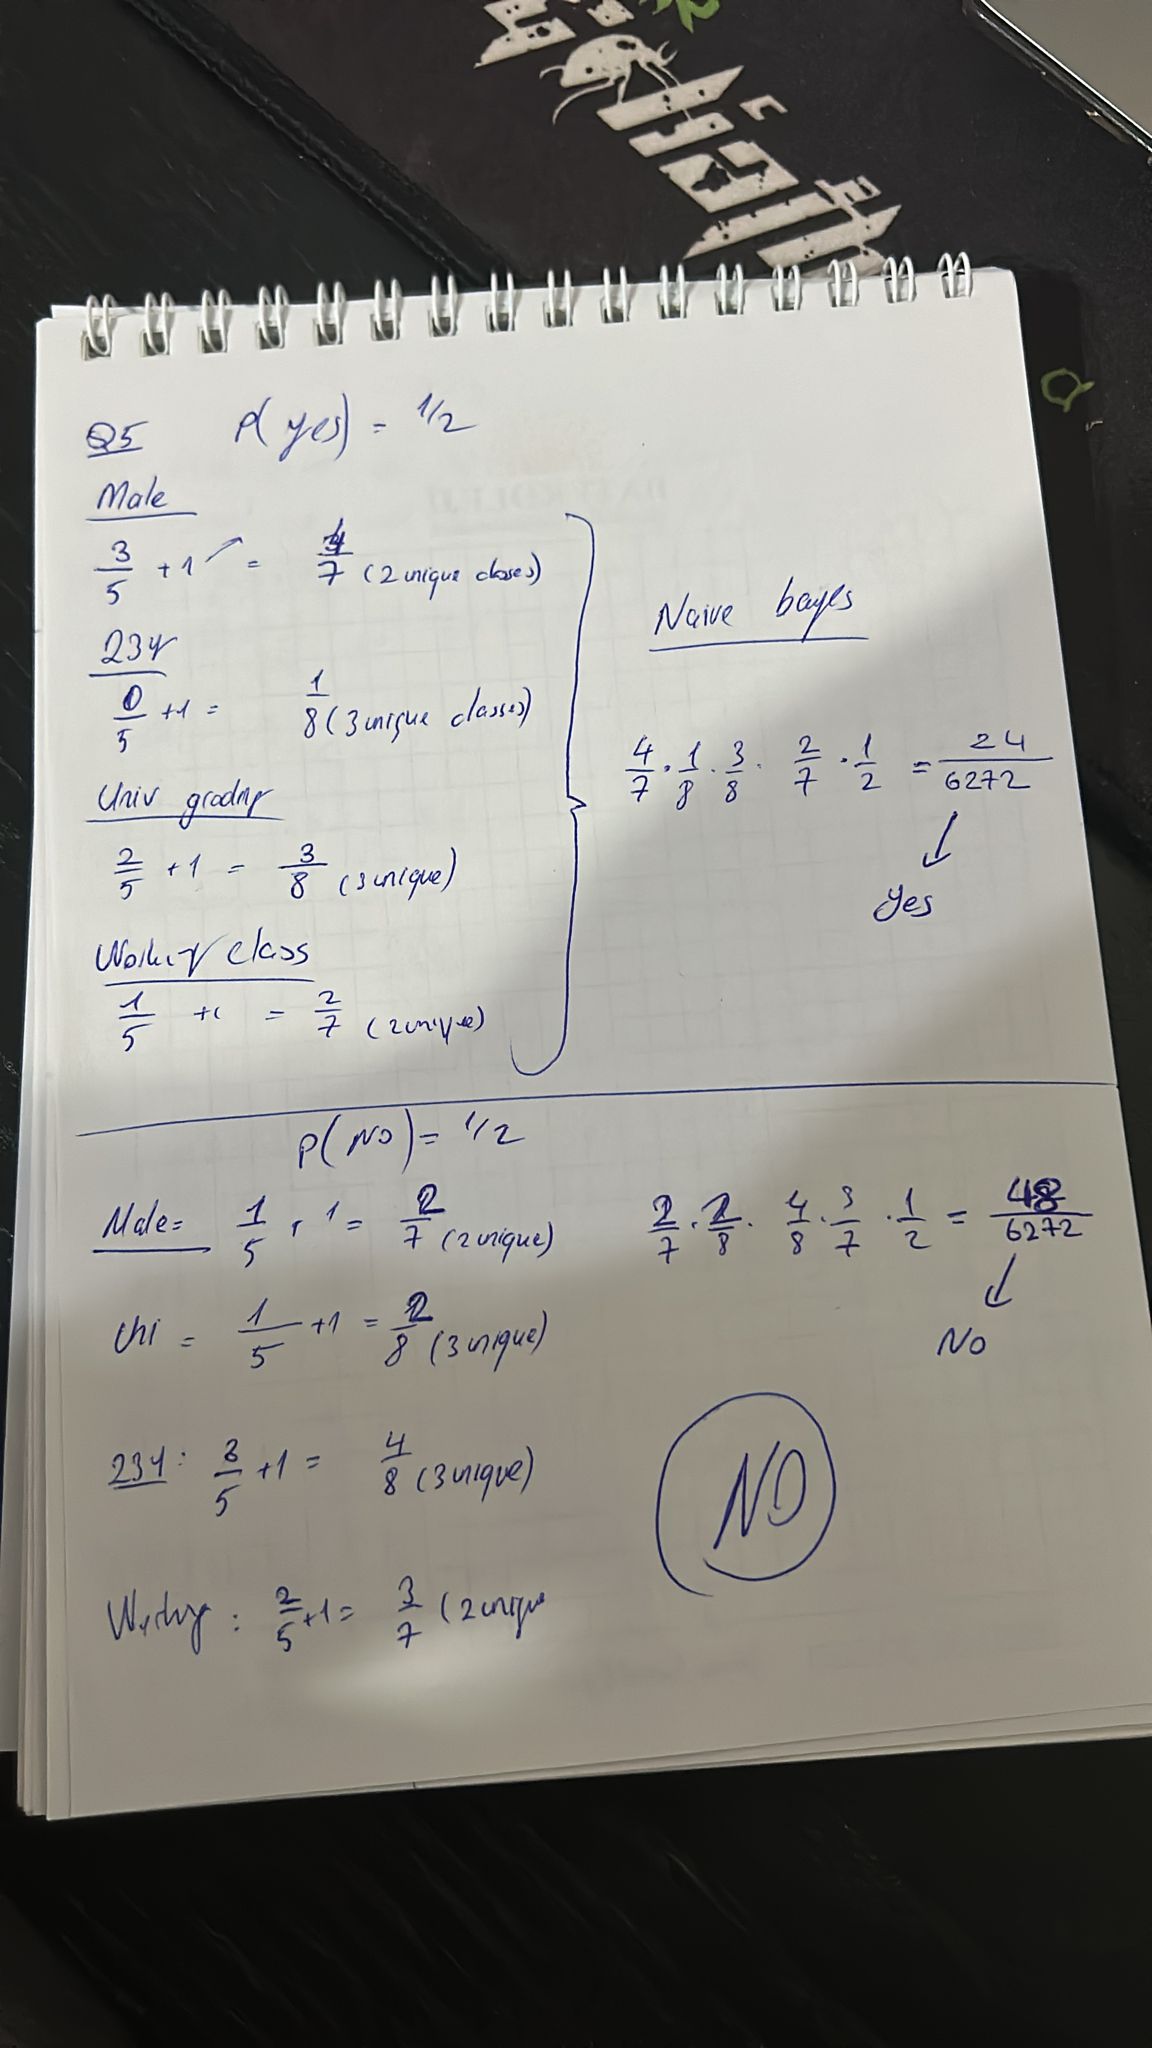 Q5 P(yes) = 1/2
Male
3/5 + 1 = 4/7 (2 unique classes)
234
0/5 +1 = 1/8 (3 unique classes)
Univ
2/5 + 1 = 3/8 (3 unique)
class
1/5 +1 = 2/7 (2 unique)
Naive bayes
4/7 . 1/8 . 3/8 . 2/7 . 1/2 = 24/6272
Yes
P(NO) = 1/2
Male = 1/5 + 1 = 2/7 (2 unique)
Uni = 1/5 +1 = 2/8 (3 unique)
234: 3/5 +1 = 4/8 (3 unique)
: 2/5 +1 = 3/7 (2 unique
2/7 . 2/8 . 4/8 . 3/7 . 1/2 = 48/6272
No
NO